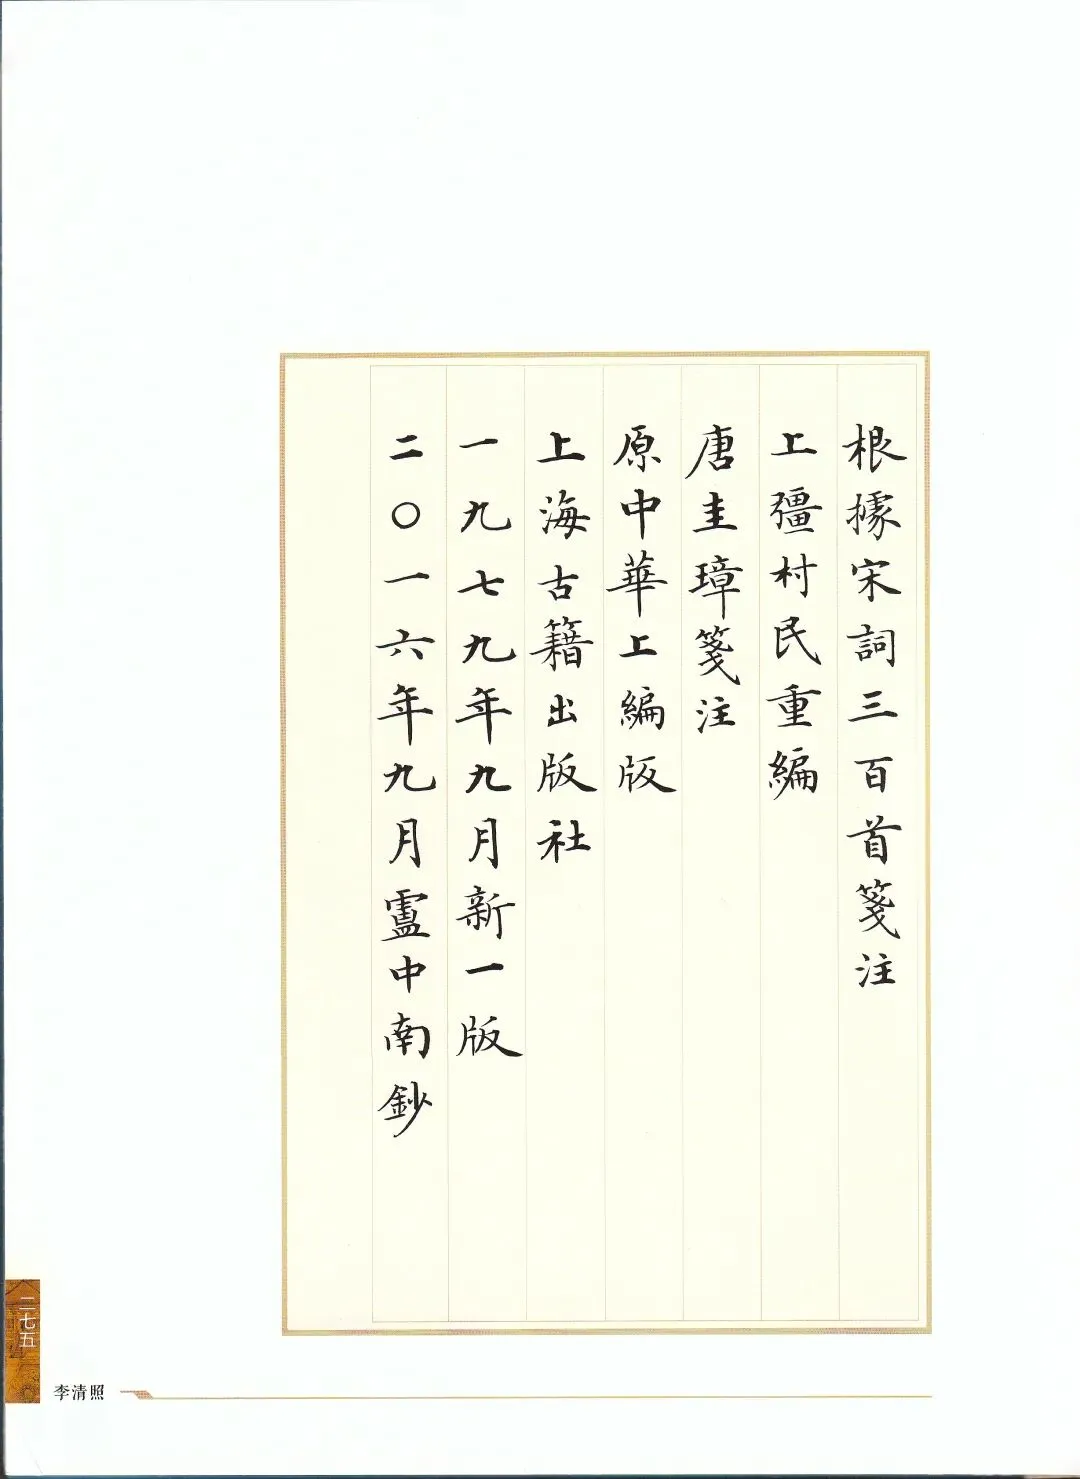 根據宋詞三百首箋注
上彊村民重編
唐圭璋箋注
原中華上編版
上海古籍出版社
一九七九年九月新一版
二〇一六年九月盧中南鈔
二七五
李清照